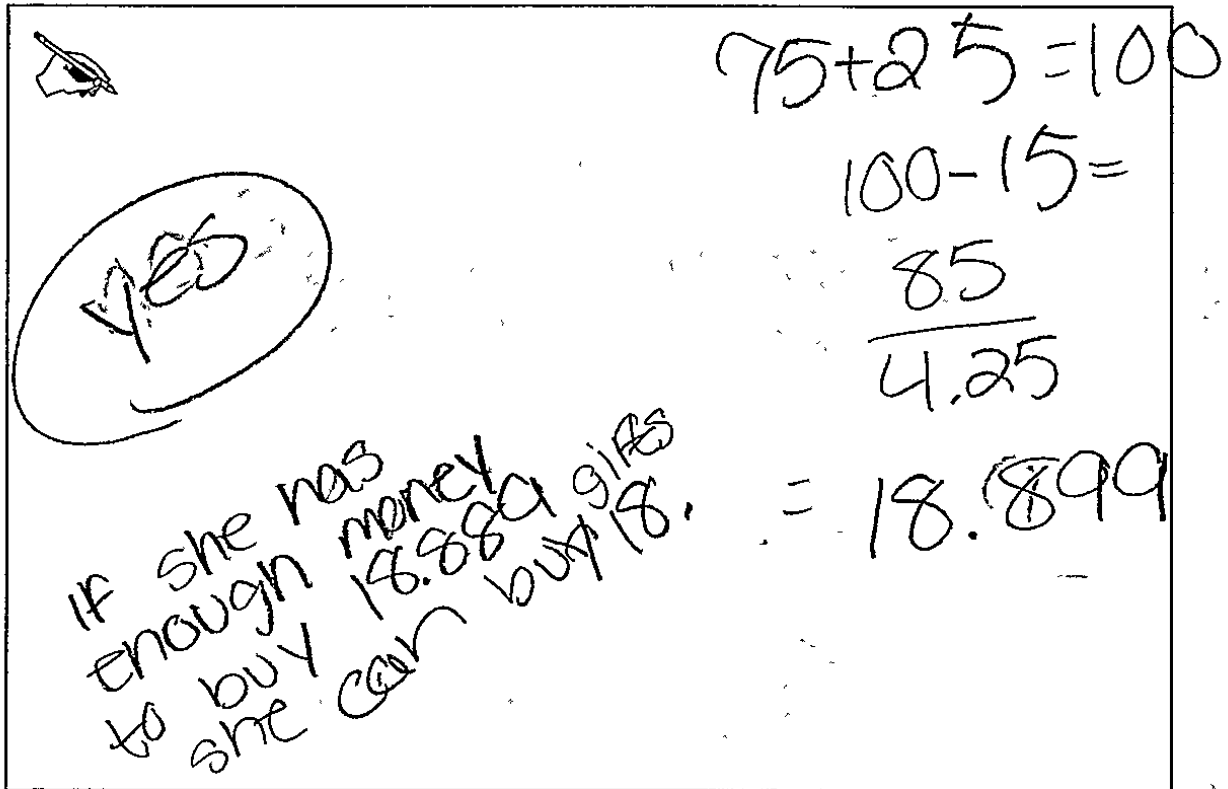 75+25=100
100-15=
85
4.25
= 18.899
yes
If she has
enough money
to buy 18.889 gifts
she can buy 18.